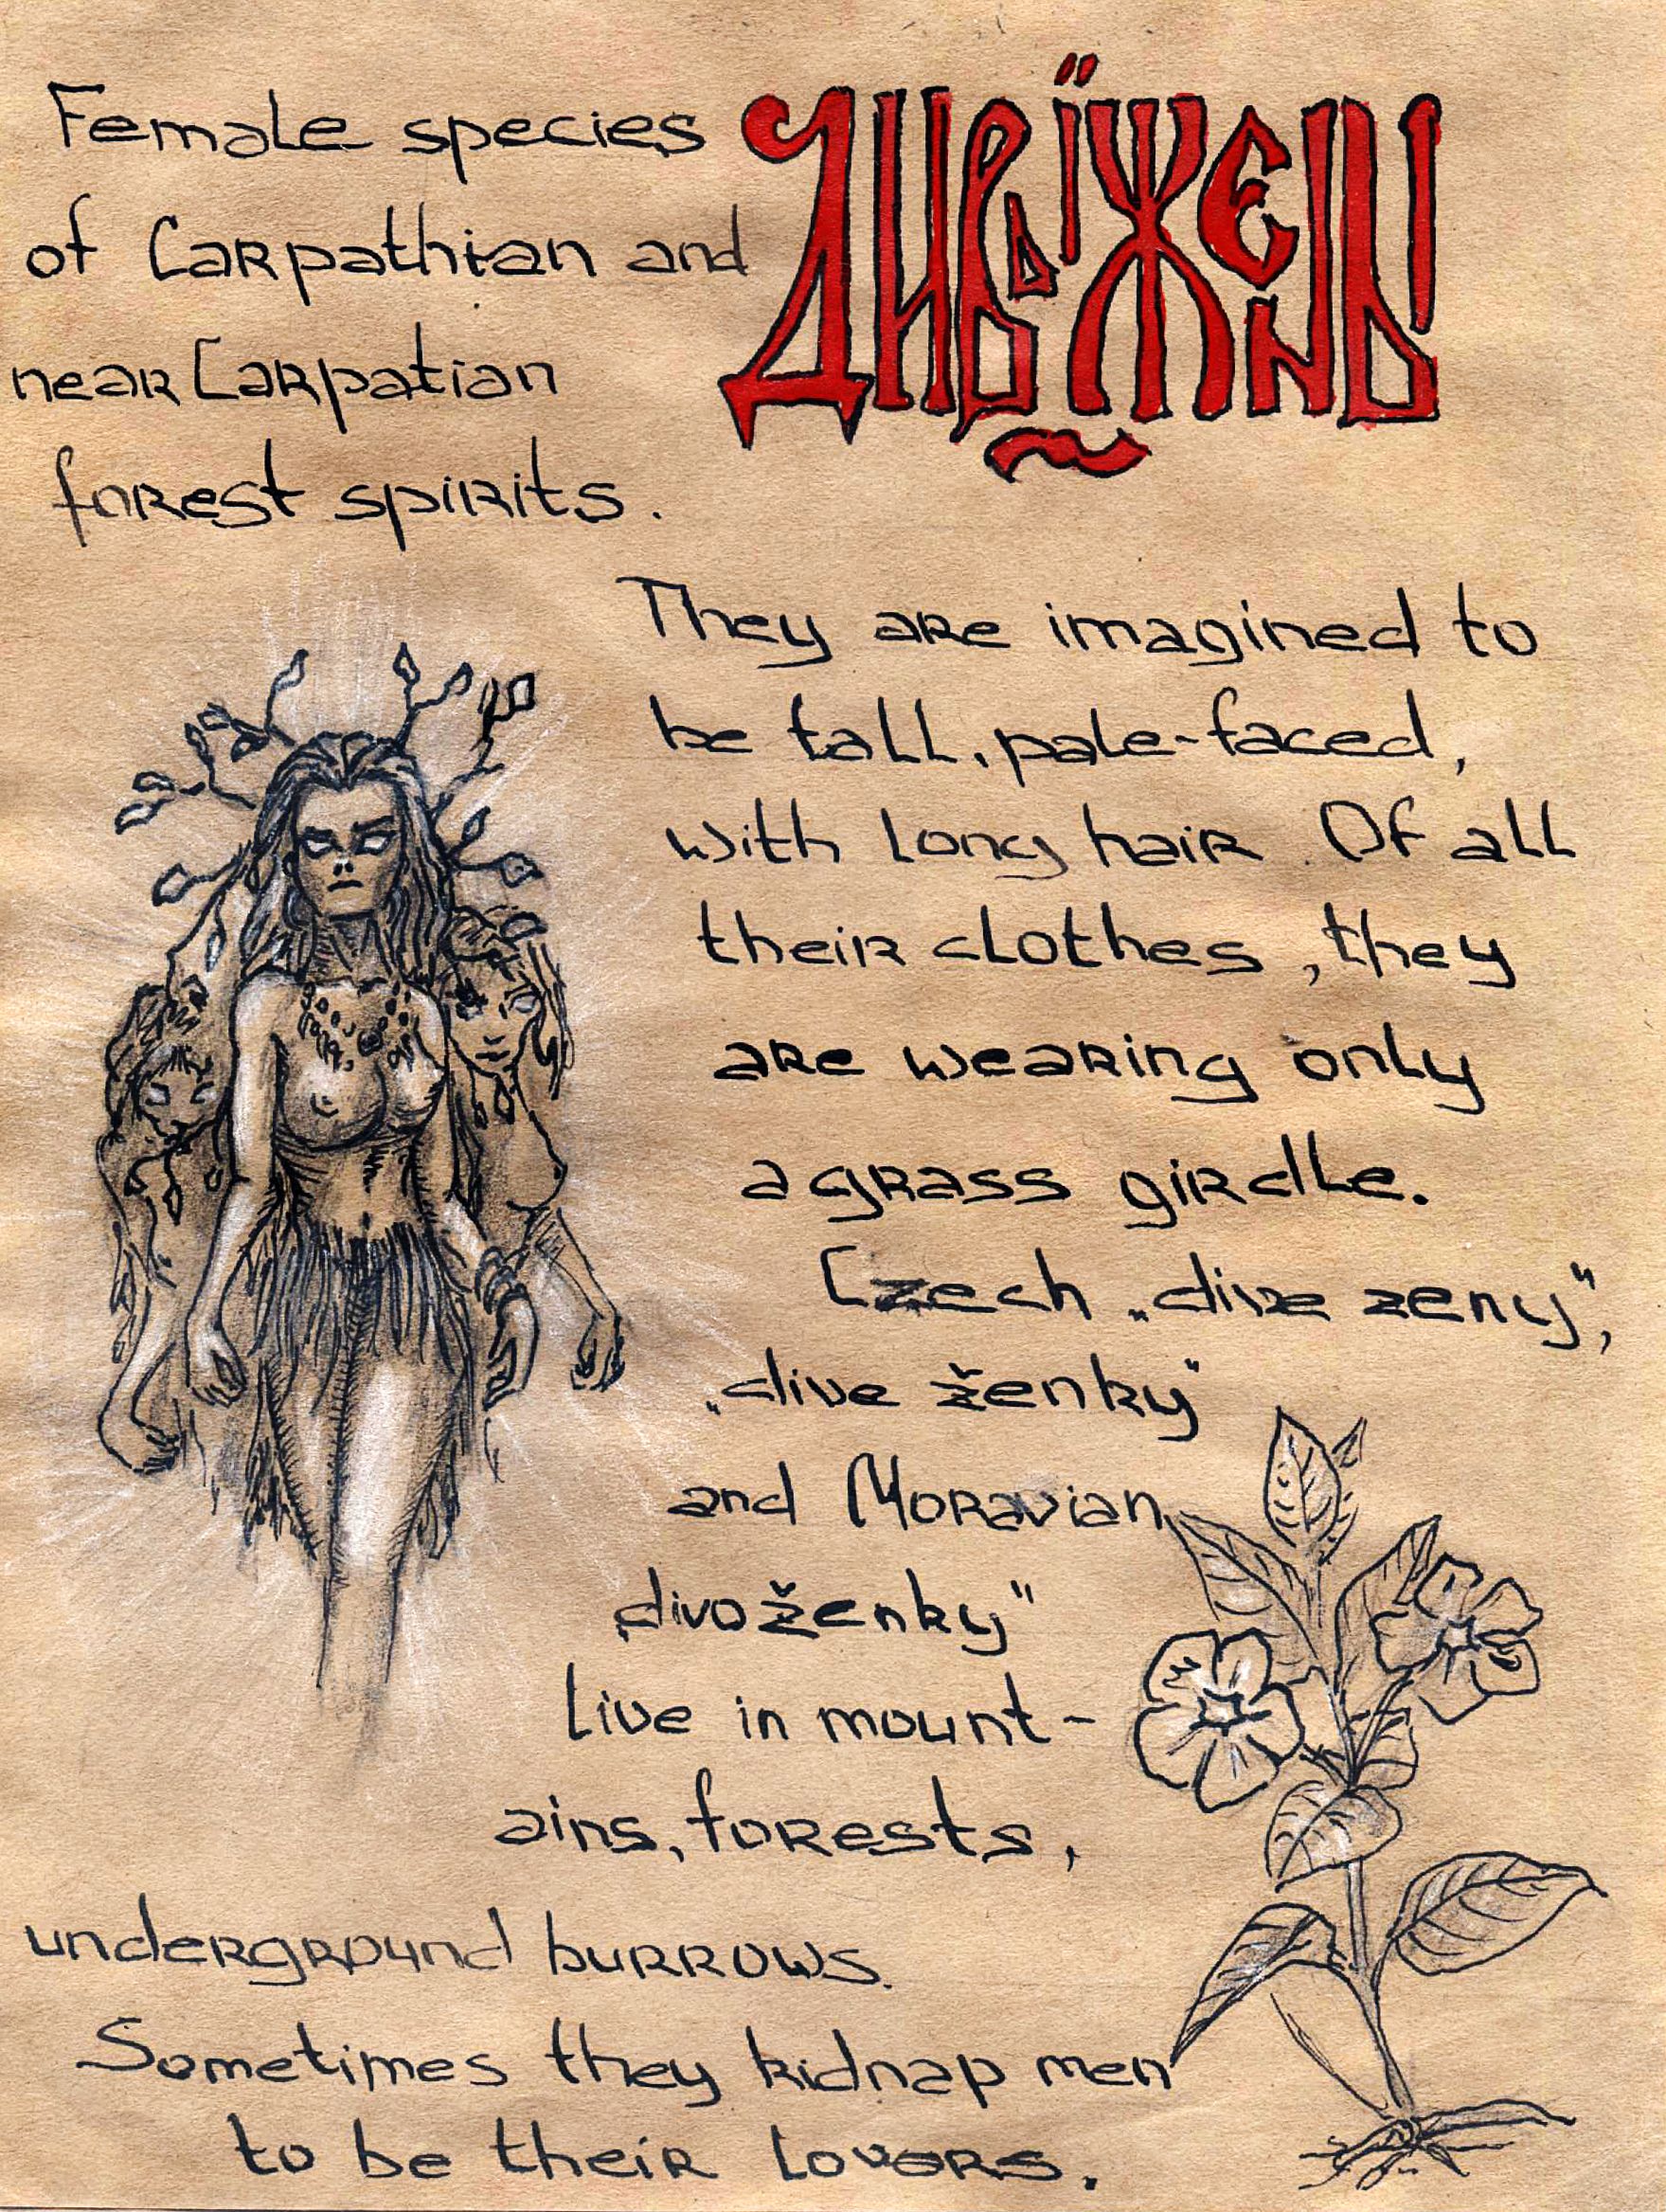 ДИВЬЇ ЖЕНЫ
Female species
of Carpathian and
near Carpatian
forest spirits.
They are imagined to
be tall, pale-faced,
with long hair. Of all
their clothes, they
are wearing only
a grass girdle.
Czech „dive zeny",
„dive ženky"
and Moravian
„divoženky"
Live in mount-
ains, forests,
underground burrows.
Sometimes they kidnap men
to be their lovers.